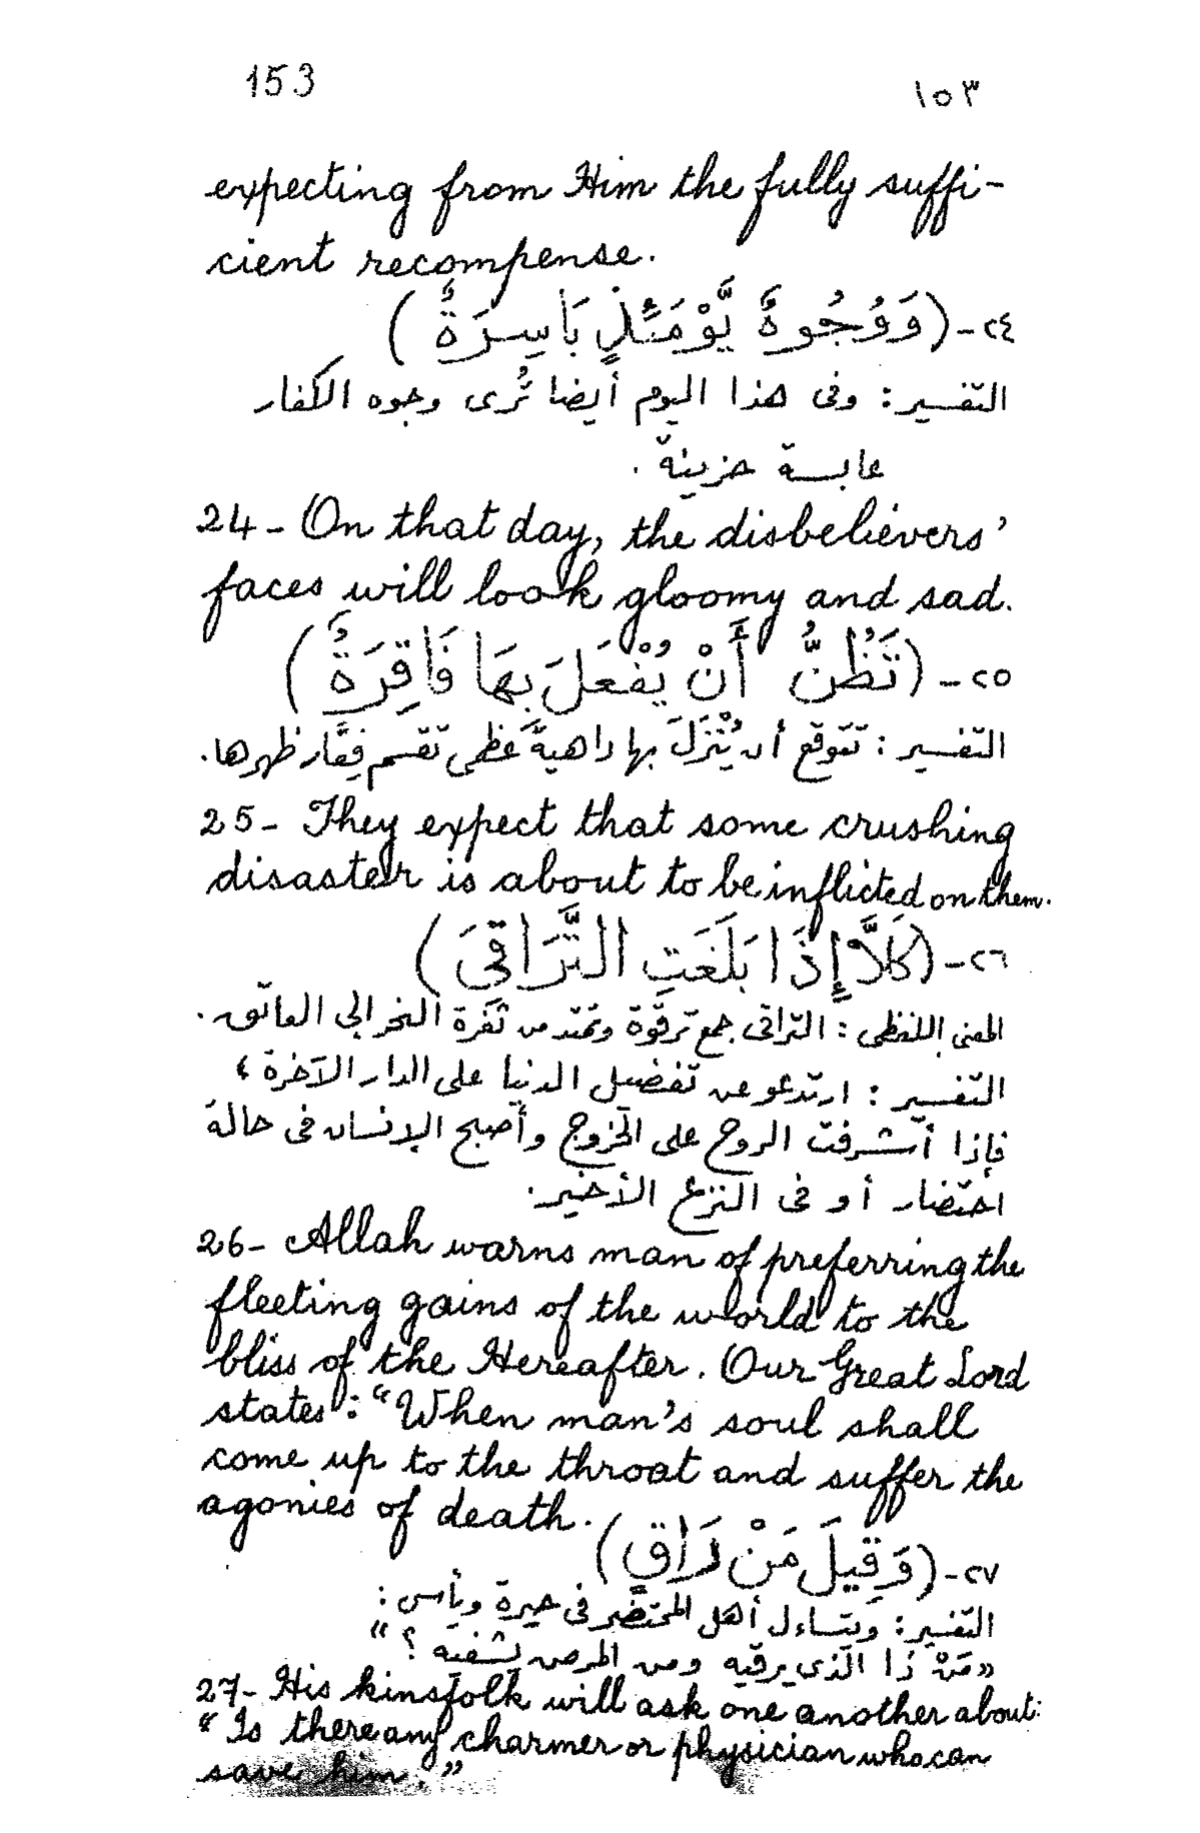 153 ١٥٣
expecting from Him the fully suffi-
cient recompense.
٢٤-(وَوُجُوهٌ يَّوْمَئِذٍ بَاسِرَةٌ)
التفسير: وفى هذا اليوم أيضا تُرى وجوه الكفار
عابسة حزينة.
24- On that day, the disbelievers'
faces will look gloomy and sad.
٢٥-(تَظُنُّ أَنْ يُفْعَلَ بِهَا فَاقِرَةٌ)
التفسير: تتوقع أن يُنْزَلَ بها داهية عظمى تقسم فِقَار ظهرها.
25- They expect that some crushing
disaster is about to be inflicted on them.
٢٦-(كَلَّا إِذَا بَلَغَتِ التَّرَاقِىَ)
المعنى اللفظى: التراقى جمع ترقوة وتمتد من ثغرة النحر إلى العاتق.
التفسير: ارتدعو عن تفضيل الدنيا على الدار الآخرة؛
فإذا أشرفت الروح على الخروج وأصبح الإنسان فى حالة
احتضار أو فى النزع الأخير.
26- Allah warns man of preferring the
fleeting gains of the world to the
bliss of the Hereafter. Our Great Lord
states: "When man's soul shall
come up to the throat and suffer the
agonies of death.
٢٧-(وَقِيلَ مَنْ رَاقٍ)
التفسير: ويتساءل أهل المحتضر فى حيرة ويأس:
«مَنْ ذا الذى يرقيه ومن المرض يشفيه؟»
27- His kinsfolk will ask one another about:
"Is there any charmer or physician who can
save him."